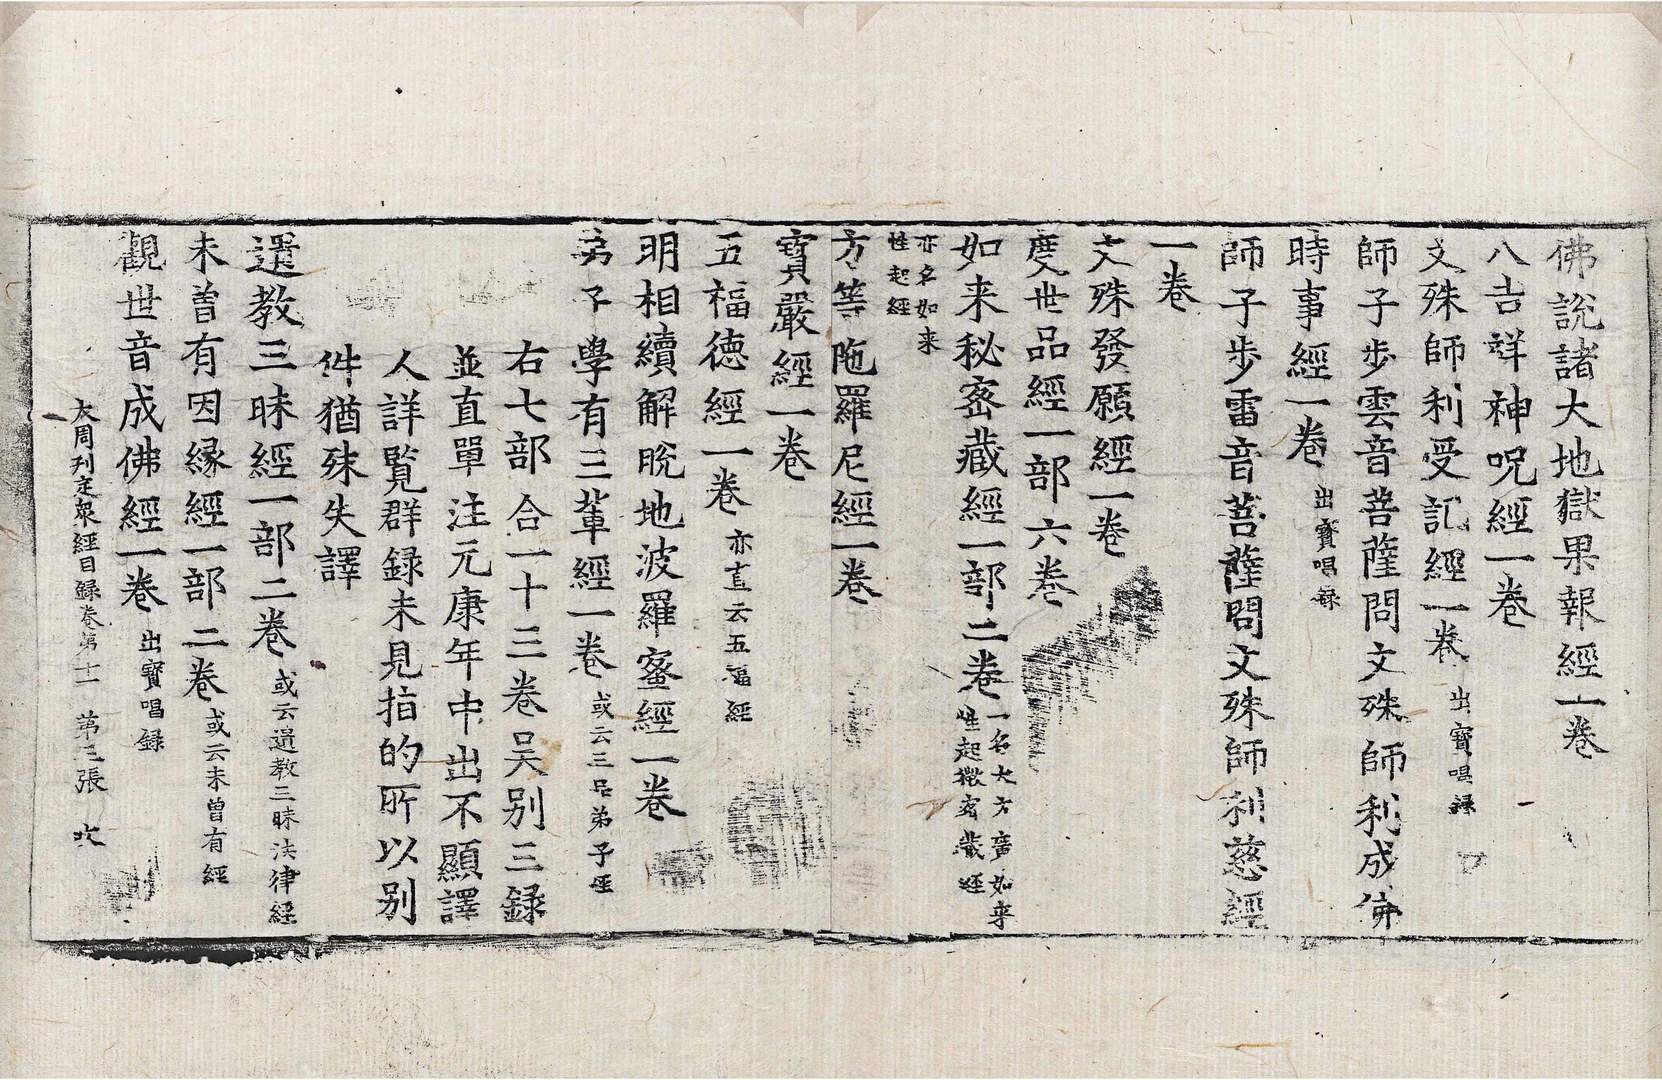 佛說諸大地獄果報經一卷
八吉祥神呪經一卷
文殊師利受記經一卷 出寶唱錄
師子步雲音菩薩問文殊師利成佛
時事經一卷 出寶唱錄
師子步雷音菩薩問文殊師利慈經
一卷
文殊發願經一卷
度世品經一部六卷
如来秘密藏經一部二卷 一名大方廣如来
性起微密藏經
亦名如来
性起經
方等陁羅尼經一卷
寶嚴經一卷
五福德經一卷 亦直云五福經
明相續解脫地波羅蜜經一卷
弟子學有三輩經一卷 或云三品弟子經
右七部合一十三卷吴别三録
並直單注元康年中出不顯譯
人詳覧群録未見指的所以别
件猶殊失譯
遺教三昧經一部二卷 或云遺教三昧法律經
未曽有因縁經一部二卷 或云未曽有經
觀世音成佛經一卷 出寶唱録
大周刊定衆經目録卷第十一 第三張